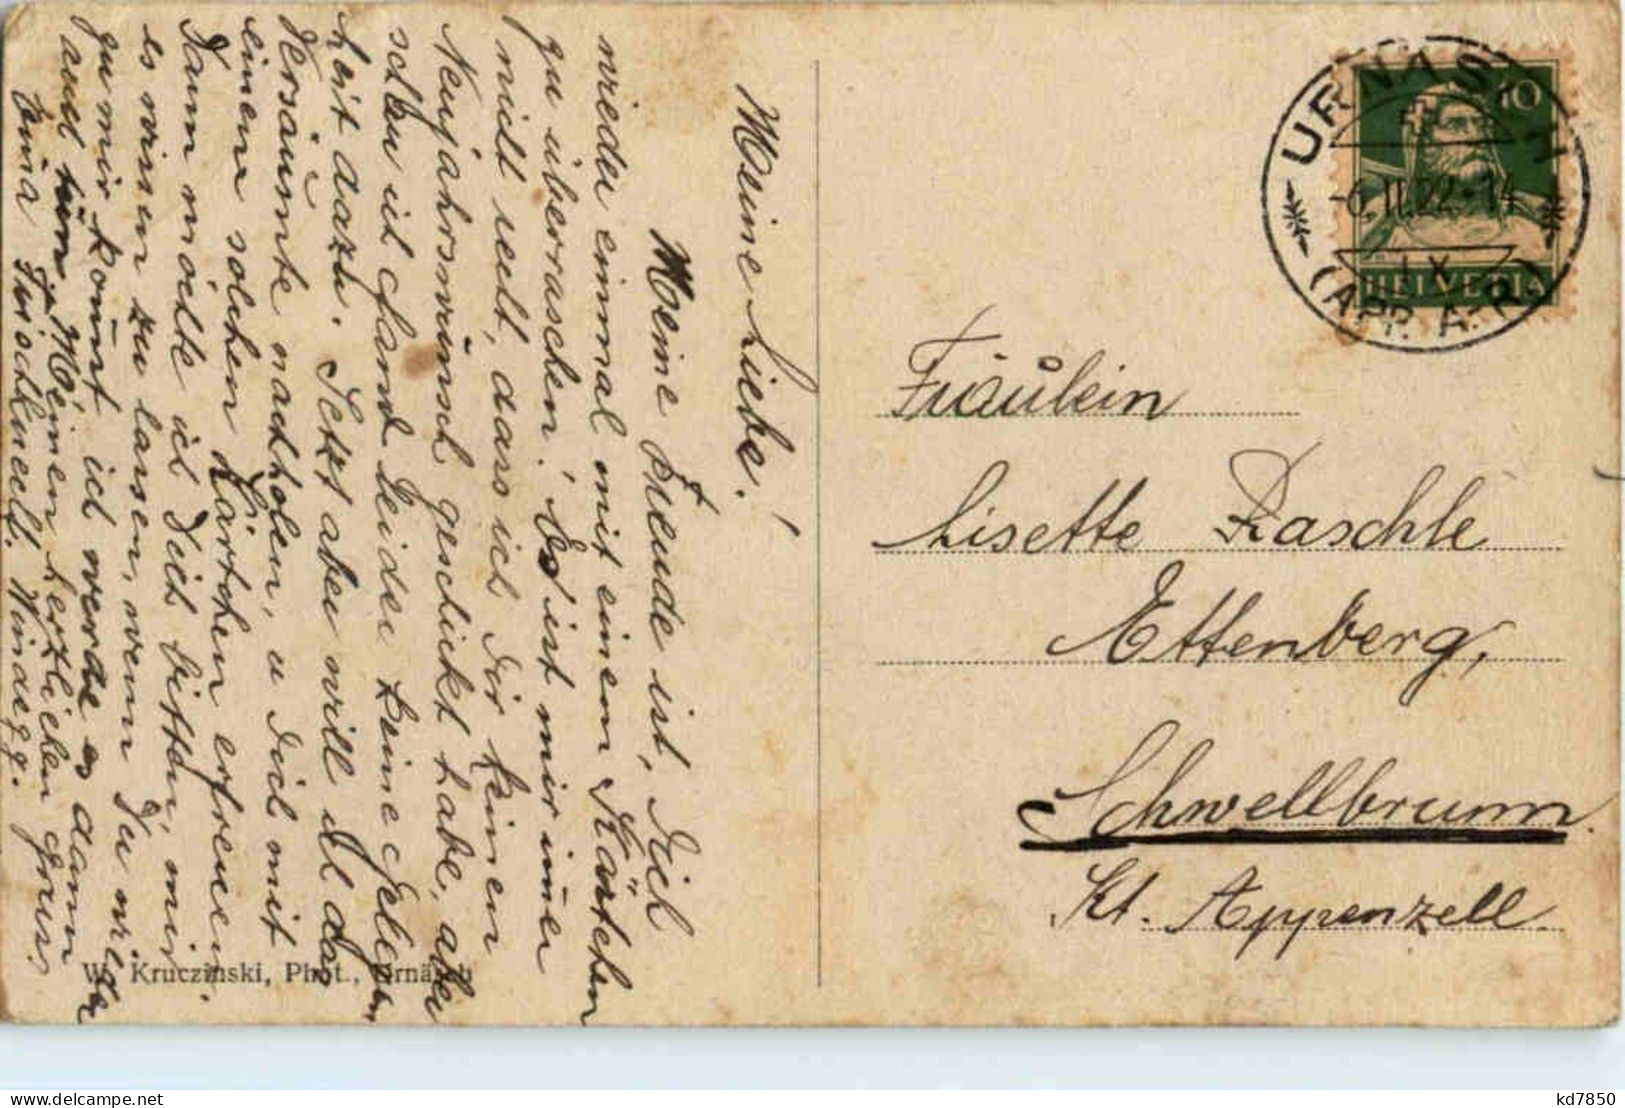 Meine Liebe!
Meine Freude ist, Dich
wieder einmal mit einem Kärtchen
zu überraschen. Es ist mir immer
nicht recht, dass ich Dir keinen
Neujahrswunsch geschickt habe, aber
schau ich fand leider keine Gelegen
heit dazu. Jetzt aber will ich das
Versäumte nachholen, u Dich mit
einem solchen Kärtchen erfreuen.
Dann möchte ich Dich bitten, mir
es wissen zu lassen, wenn Du wieder
zu mir kommst ich werde es dann
auch tun. Meinen herzlichen Gruss.
Lina Frischknecht. Windegg.
W. Kruczinski, Phot., Urnäsch
URNÄSCH
-6.II.22.-14
IX
(APP. A.-R.)
10
HELVETIA
Fräulein
Lisette Raschle
Ettenberg,
Schwellbrunn.
Kt. Appenzell.
kd7850